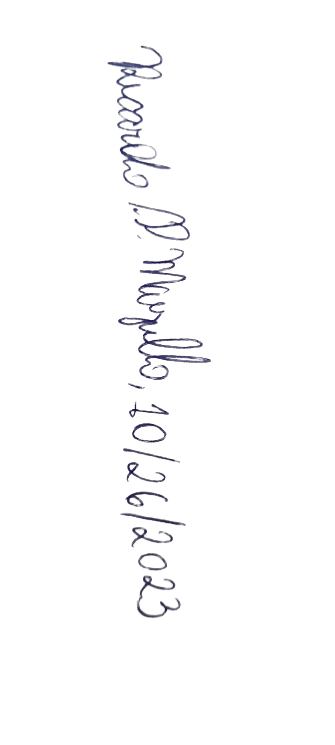 Ricardo D. Murillo, 10/26/2023